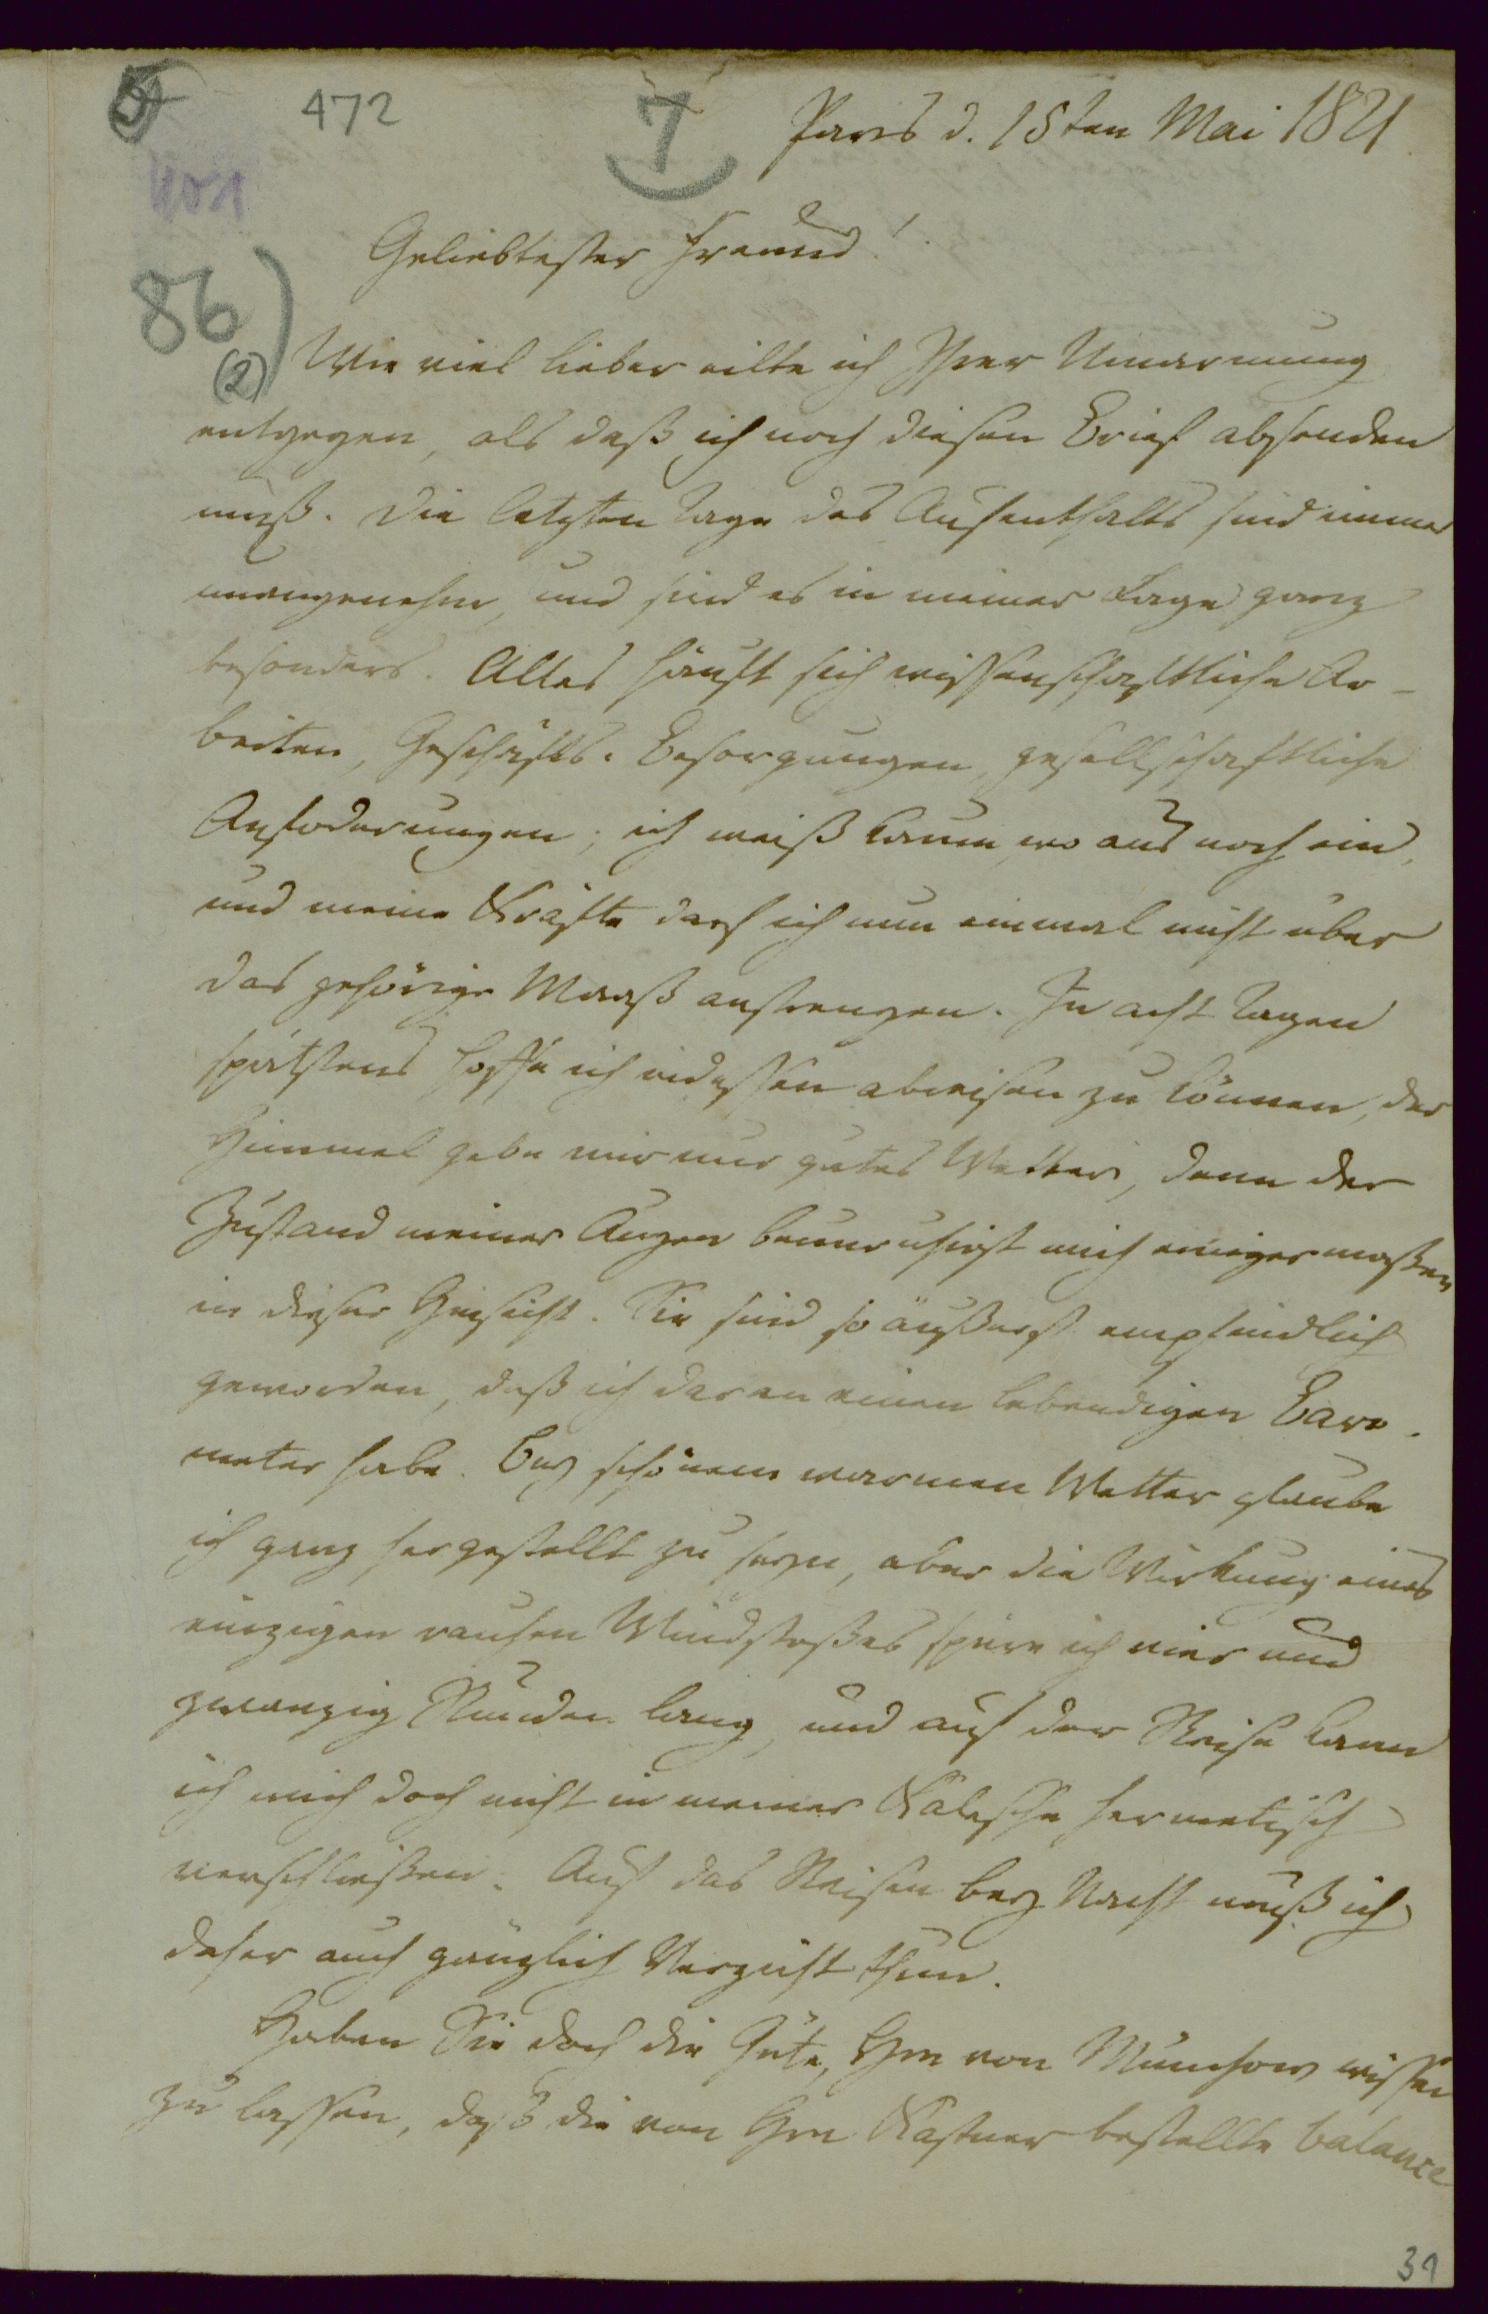 472
7
Paris d. 15ten Mai 1821
4051
Geliebtester Freund!
86)
(2)
Wie viel lieber eilte ich Ihrer Umarmung
entgegen, als daß ich noch diesen Brief absenden
muß. Die letzten Tage des Aufenthalts sind immer
unangenehm, und sind es in meiner Lage ganz
besonders. Alles häuft sich wissenschaftliche Ar-
beiten, Geschäfts-Besorgungen, gesellschaftliche
Anfoderungen; ich weiß kaum wo aus noch ein,
und meine Kräfte darf ich nun einmal nicht über
das gehörige Maaß anstrengen. In acht Tagen
spätstens hoffe ich indessen abreisen zu können, der
Himmel gebe mir nur gutes Wetter, denn der
Zustand meiner Augen beunruhigt mich einigermaßen
in dieser Hinsicht. Sie sind so äußerst empfindlich
geworden, daß ich daran einen lebendigen Baro-
meter habe. Bey schönem warmen Wetter glaube
ich ganz hergestellt zu seyn, aber die Wirkung eines
einzigen rauhen Windstoßes spüre ich vier und
zwanzig Stunden lang, und auf der Reise kann
ich mich doch nicht in meiner Kalesche hermetisch
verschließen. Auf das Reisen bey Nacht muß ich
daher auch gänzlich Verzicht thun.
Haben Sie doch die Güte, Hrn von Münchow wissen
zu lassen, daß die von Hrn Kastner bestellte balance
39